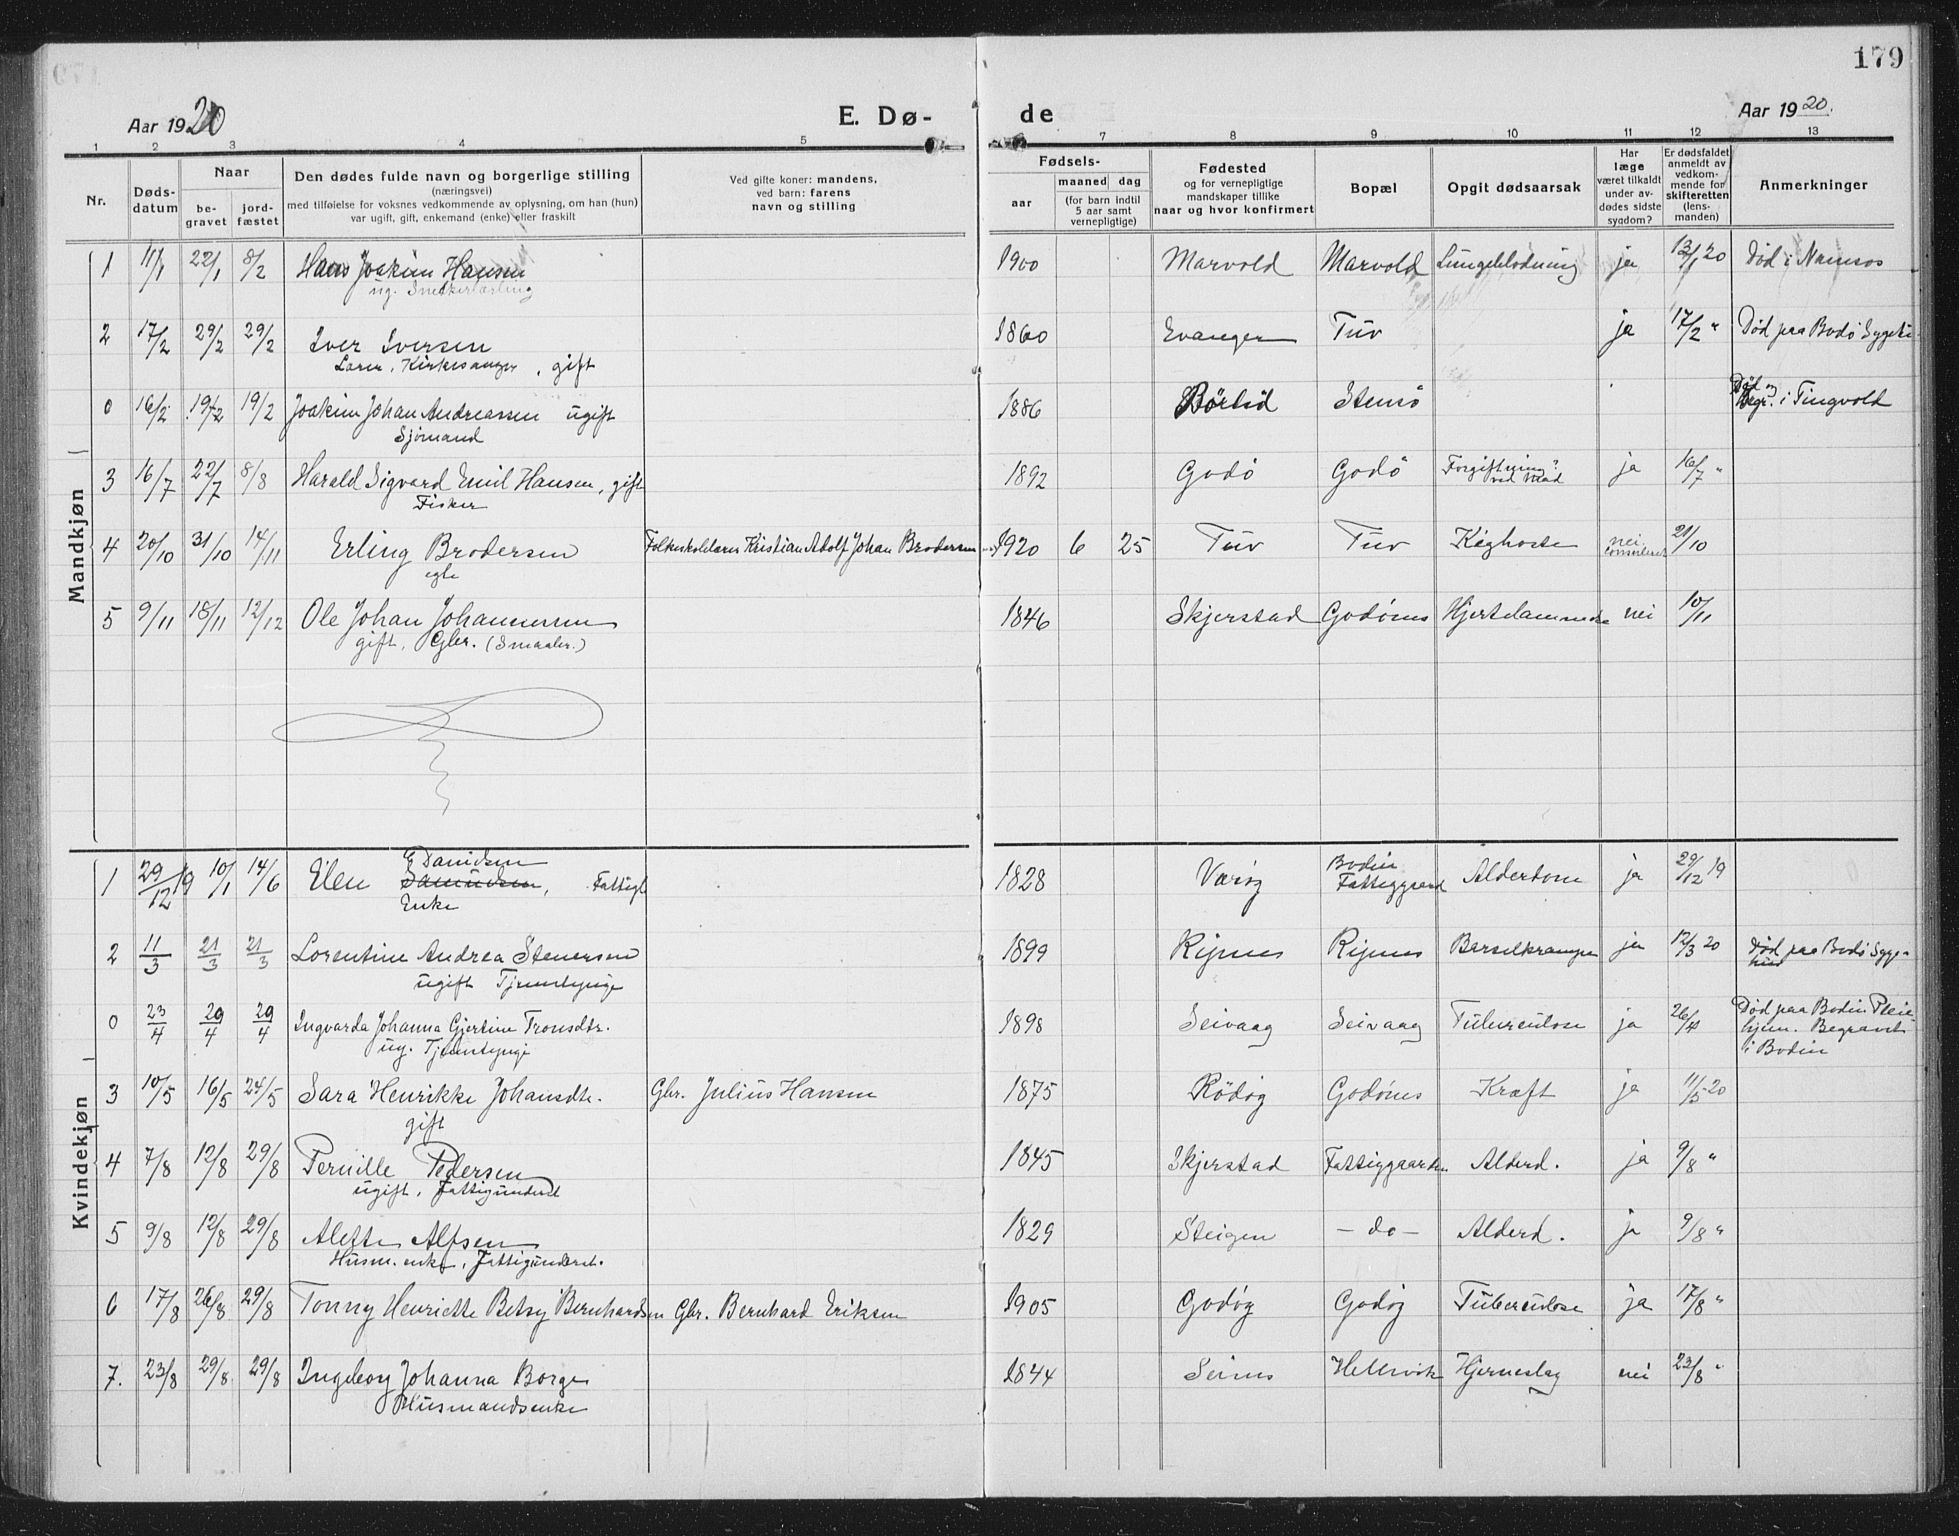 179
Aar 1920 E. Dø- de Aar 1920.
1 2 3 4 5 6 7 8 9 10 11 12 13
Nr. Døds- datum Naar be- gravet jord- fæstet
Den dødes fulde navn og borgerlige stilling
(næringsvei)
med tilføielse for voksnes vedkommende av oplysning, om han (hun)
var ugift, gift, enkemand (enke) eller fraskilt
Ved gifte koner: mandens,
ved barn: farens
navn og stilling
Fødsels-
aar maaned dag
(for barn indtil
5 aar samt
vernepligtige)
Fødested
og for vernepligtige
mandskaper tillike
naar og hvor konfirmert
Bopæl
Opgit dødsaarsak
Har
læge
været tilkaldt
under av-
dødes sidste
sygdom?
Er dødsfaldet
anmeldt av
vedkom-
mende for
skifteretten
(lens-
manden)
Anmerkninger
Mandkjøn
1 11/1 22/1 8/2 Hans Joakim Hansen 1900 Marvold Marvold Lungeblødning ja 13/1 20 Død i Namsos
ug. Snekkerlærling
2 17/2 29/2 29/2 Iver Iversen 1860 Evanger Tuv ja 17/2 " Død paa Bodø Sygeh.
Lærer, Kirkesanger, gift
0 16/2 19/2 19/2 Joakim Johan Andreassen ugift 1886 Stensø Død og
Begr. i Tingvold
Sjømand
3 16/7 22/7 8/8 Harald Sigvard Emil Hansen, gift 1892 Godø Godø Forgiftning? ja 16/7 "
ved mad
Fisker
4 20/10 31/10 14/11 Erling Brodersen Folkeskolelærer Kristian Adolf Johan Brodersen 1920 6 25 Tuv Tuv Kighoste nei 21/10
egte
5 9/11 18/11 12/12 Ole Johan Johannessen 1846 Skjerstad Godønes Hjertelammelse nei 10/11
gift, Gbr. (Smaabr.)
Kvindekjøn
1 29/12 19 10/1 14/6 Elen Danielsen Samuelsen, Fattigl 1828 Værøy Bodin
Fattiggaard Alderdom ja 29/12 19
Enke
2 11/3 21/3 21/3 Lorentine Andrea Stenersen 1899 Kipnes Kipnes Barselkrampe ja 12/3 20 Død paa Bodø Syge-
hus
ugift Tjenestepige
0 23/4 29/4 29/4 Ingvarda Johanna Gjertine Tronsdtr. 1898 Seivaag Seivaag Tuberculose ja 26/4 Død paa Bodin Pleie-
hjem. Begravet
i Bodin
ug. Tjenestepige
3 10/5 16/5 24/5 Sara Henrikke Johansdtr. Gbr. Julius Hansen 1875 Rødøy Godønes Kræft ja 11/5 20
gift
4 7/8 12/8 29/8 Pernille Pedersen 1845 Skjerstad Fattiggaarden Alderd. ja 9/8 "
ugift, Fattigunderst
5 9/8 12/8 29/8 Alette Alfsen 1829 Steigen - do - Alderd. ja 9/8 "
Husm. enke, Fattigunderst.
6 17/8 26/8 29/8 Tonny Henriette Betsy Bernhardsen Gbr. Bernhard Eriksen 1905 Godøy Godøy Tuberculose ja 17/8 "
7. 23/8 29/8 29/8 Ingeborg Johanna Borge 1844 Seines Hellevik Hjerneslag nei 23/8 "
Husmandsenke